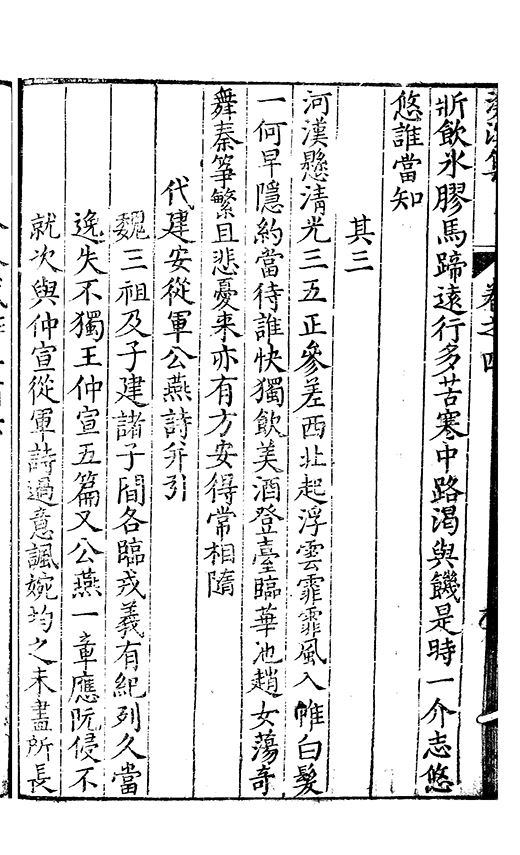 斨飲氷膠馬蹄遠行多苦寒中路渴與饑是時一介志悠
悠誰當知
其三
河漢懸清光三五正參差西北起浮雲霏霏風入帷白髮
一何早隱約當待誰快獨飲美酒登臺臨華池趙女蕩奇
舞秦箏繁且悲憂來亦有方安得常相隨
代建安從軍公燕詩并引
魏三祖及子建諸子間各臨戎義有紀列久當
逸失不獨王仲宣五篇又公燕一章應阮侵不
就次與仲宣從軍詩過意諷婉均之未盡所長